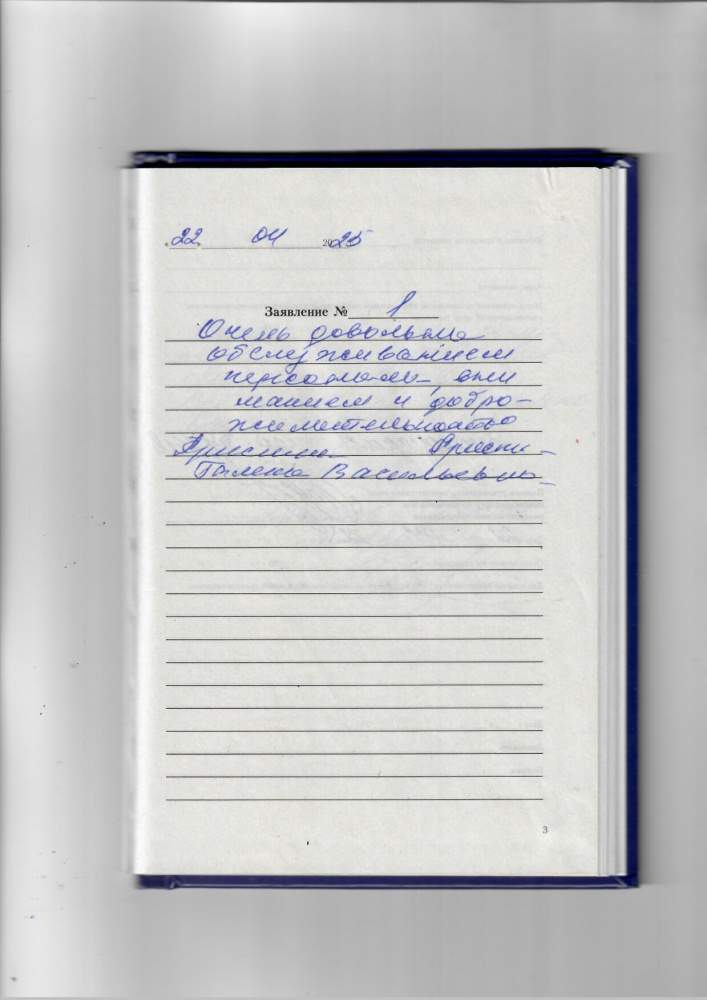 „22" 04 2025
Заявление № 1
Очень довольна
обслуживанием
персонала, вни
манием и добро-
жилательностью
Галина Васильевна
3